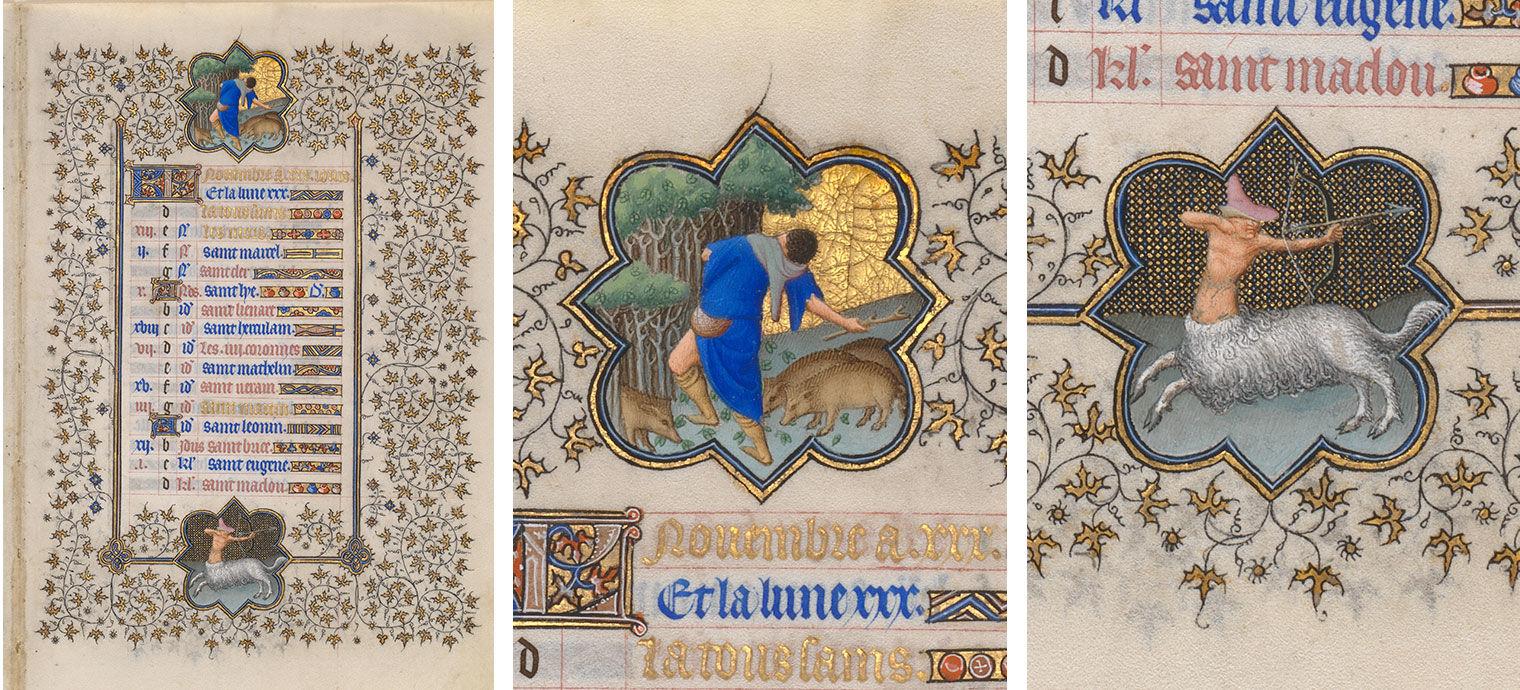 KL Nouembre a .xxx. iours
Et la lune xxx.
d la tous sains.
xiii. e les mors.
ij. f saint marcel.
g saint cler
v. A Nos. saint lye.
b id' saint lienart
xviij c id' saint herculain.
vij. d id' les .iiij. coronnes
e id' saint mathelin
xv. f id' saint verain.
iiij. g id' saint martin
A id' saint leonin.
xij. b jdus saint brice.
.i. c kl' saint eugene.
d kl'. saint maclou.
KL Nouembre a .xxx.
Et la lune xxx.
d la tous sains.
c kl' saint eugene.
d kl'. saint maclou.